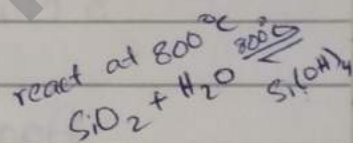 react at 800°C
SiO₂ + H₂O 800°C Si(OH)₄